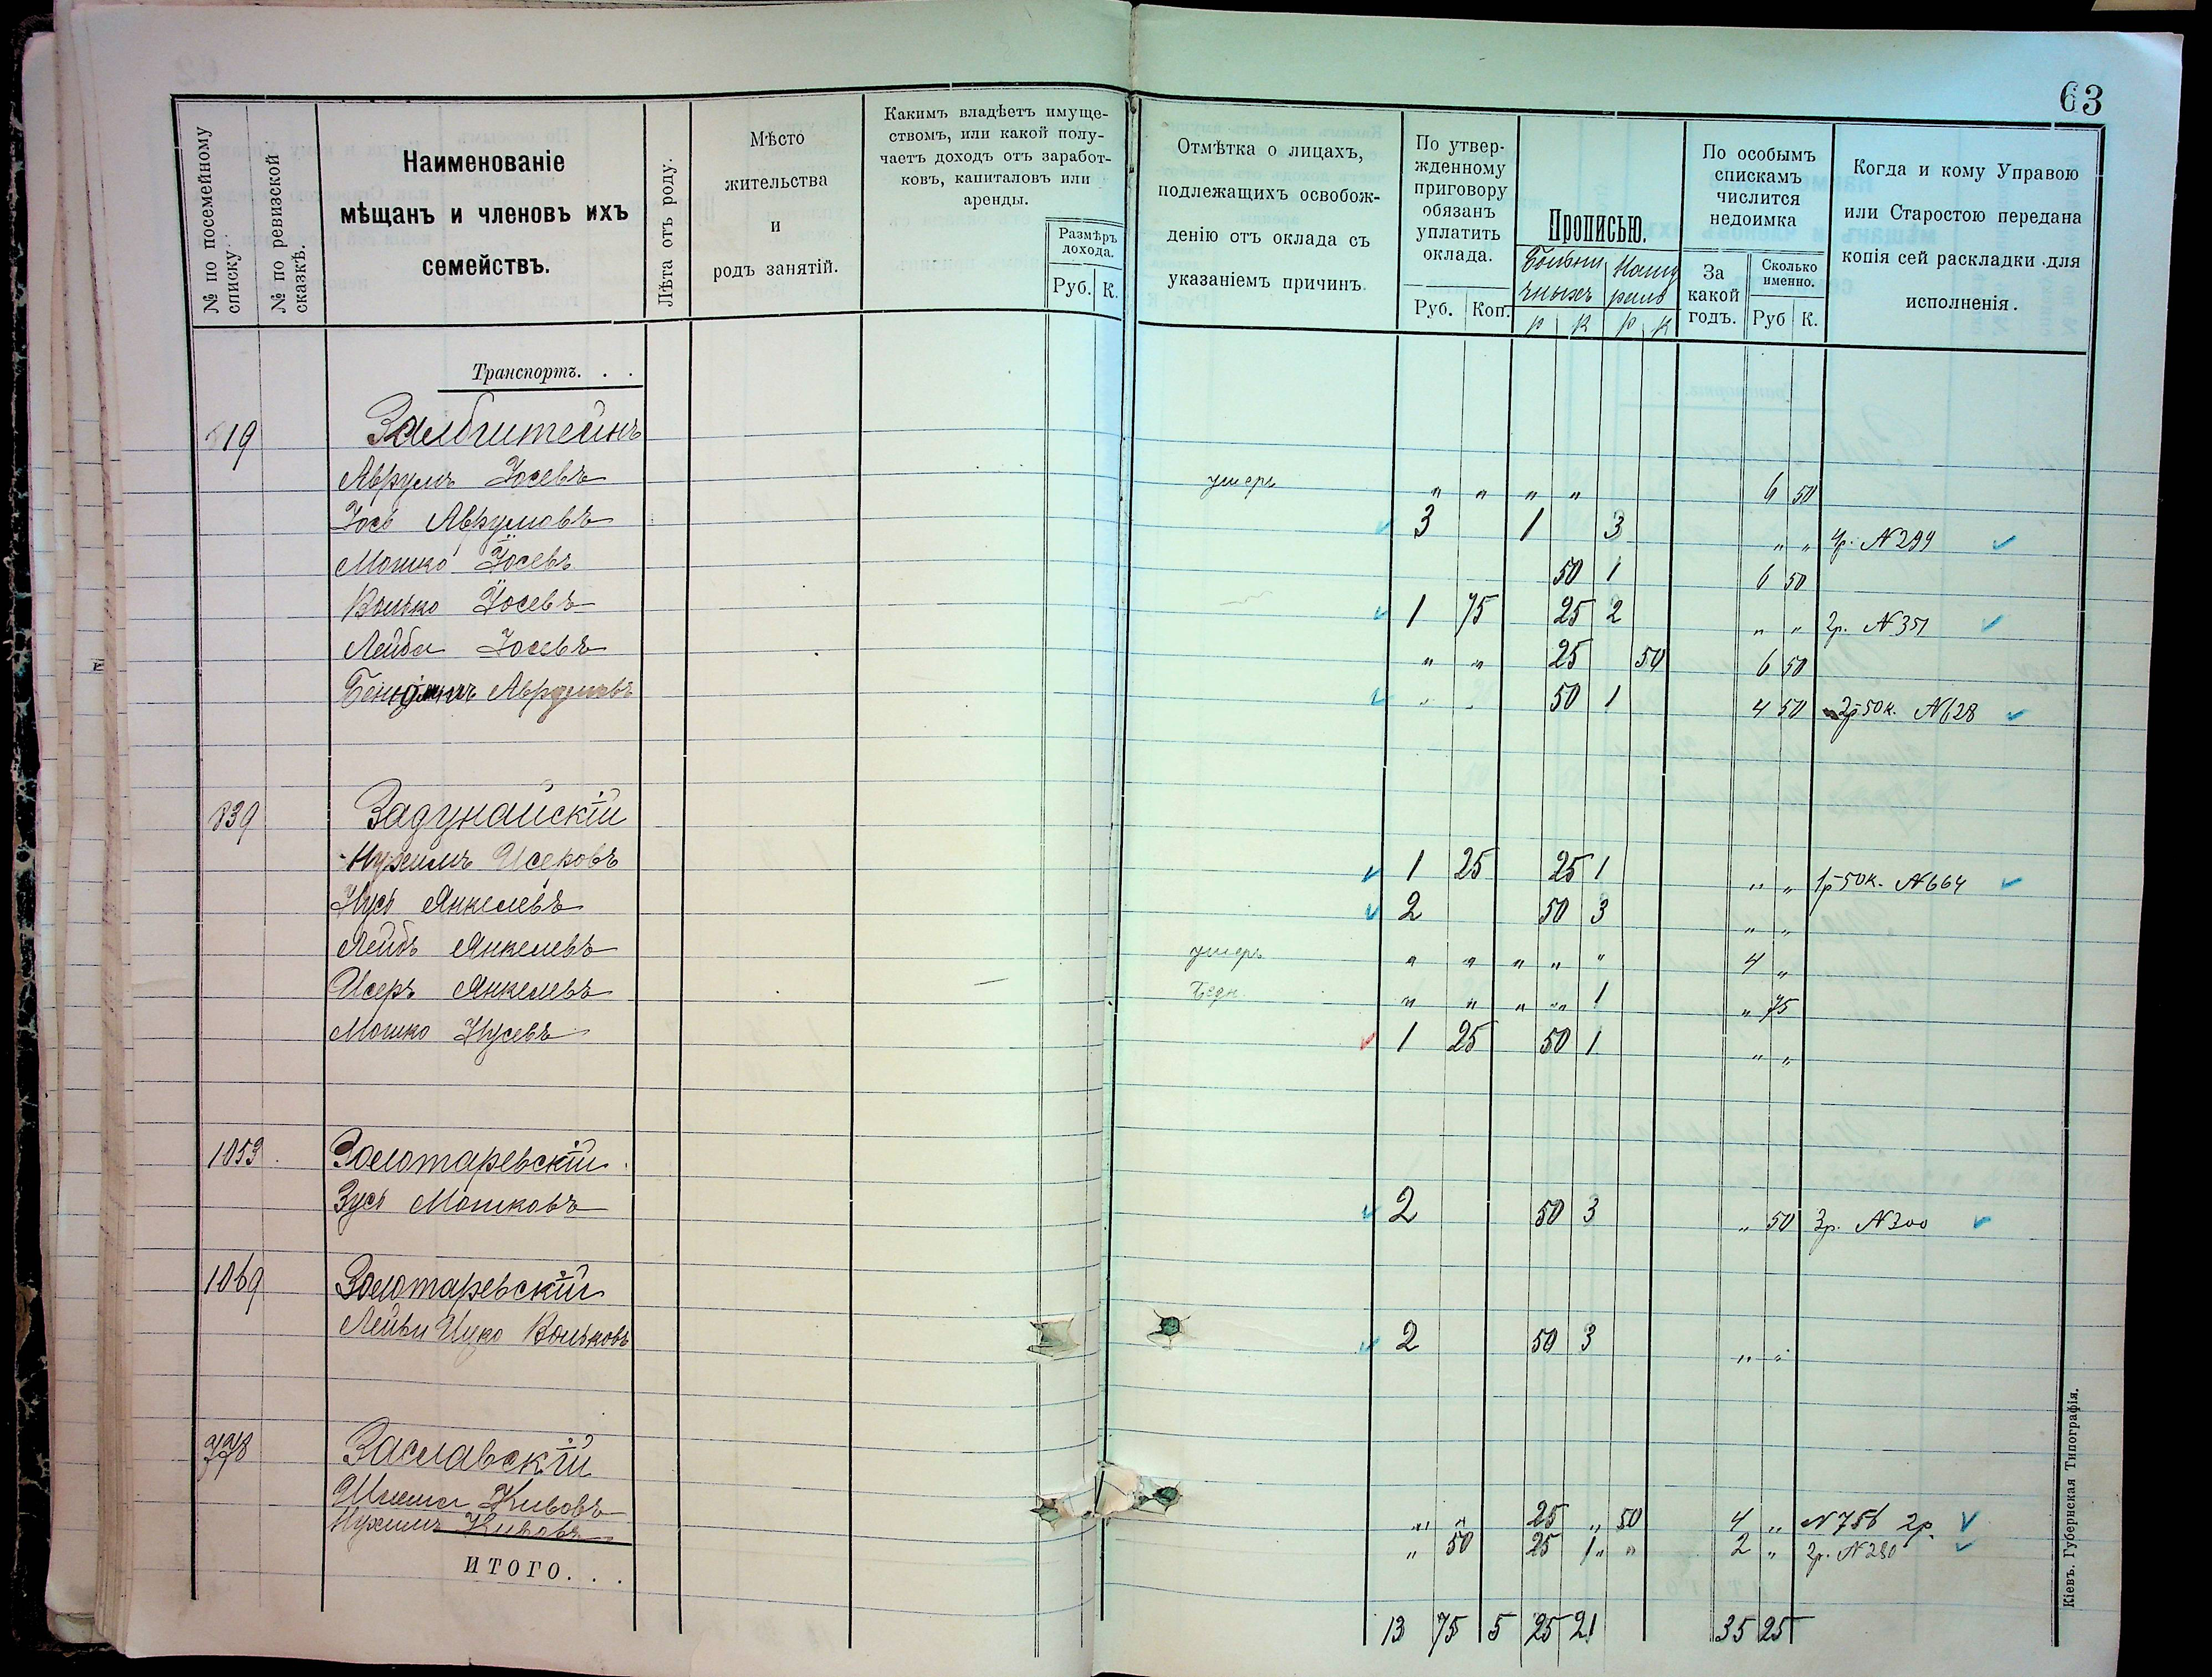 63
№ по посемейному списку.
№ по ревизской сказкѣ.
Наименованіе мѣщанъ и членовъ ихъ семействъ.
Лѣта отъ роду.
Мѣсто жительства и родъ занятій.
Какимъ владѣетъ имуще-
ствомъ, или какой полу-
чаетъ доходъ отъ заработ-
ковъ, капиталовъ или
аренды.
Размѣръ дохода.
Руб. К.
Отмѣтка о лицахъ,
подлежащихъ освобож-
денію отъ оклада съ
указаніемъ причинъ.
По утвер-
жденному
приговору
обязанъ
уплатить
оклада.
Руб. Коп.
Прописью.
р к р к
По особымъ
спискамъ
числится
недоимка
За какой годъ.
Сколько именно.
Руб К.
Когда и кому Управою
или Старостою передана
копія сей раскладки для
исполненія.
Транспортъ. . .
19 Залбштейнъ
Аврумъ Іосевъ умеръ " " " " 6 50
Іось Аврумовъ 3 1 3 " " 4р. N 294
Мошко Іосевъ 50 1 6 50
Волько Іосевъ 1 75 25 2 " " 2р. N 351
Лейба Іосевъ " " 25 50 6 50
Аврумовъ " " 50 1 4 50 2р 50к. N 628
839 Задунайскій
Нухимъ Исеровъ 1 25 25 1 " " 1р 50к. N 664
Нусь Янкелевъ 2 50 3 " "
Лейбъ Янкелевъ умеръ " " " " " 4 "
Исеръ Янкелевъ Бедн. " " " " 1 " 75
Мошко Нусевъ 1 25 50 1 " "
1053 Золотаревскій
Зусь Мошковъ 2 50 3 " 50 3р. N 300
1069 Золотаревскій
Ицко Вольковъ 2 50 3 " "
778 Заславскій
Шлема Кивовъ " " 25 " 50 4 " N 756 2р.
Нухимъ Кивовъ " 50 25 1 " " 2 " 2р. N 280
ИТОГО. . .
13 75 5 25 21 35 25
Кіевъ. Губернская Типографія.